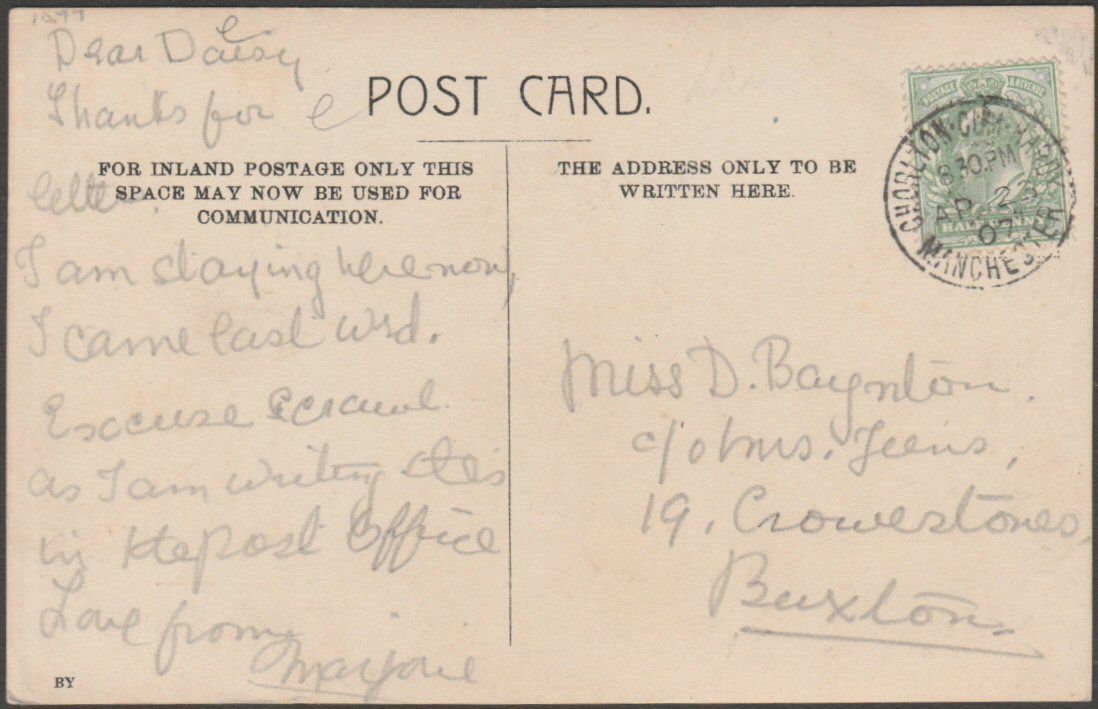 1977
Dear Daisy
Thanks for
letter.
I am staying here now,
I came last Wed.
Excuse scrawl
as I am writing this
in the post office
Love from
Marjorie
POST CARD.
FOR INLAND POSTAGE ONLY THIS
SPACE MAY NOW BE USED FOR
COMMUNICATION.
BY
THE ADDRESS ONLY TO BE
WRITTEN HERE.
POSTAGE & REVENUE
HALFPENNY
CHORLTON-CUM-HARDY
8.30.PM
AP 23
07
MANCHESTER
Miss D. Baynton.
c/o Mrs. Jeens,
19, Crowestones,
Buxton.